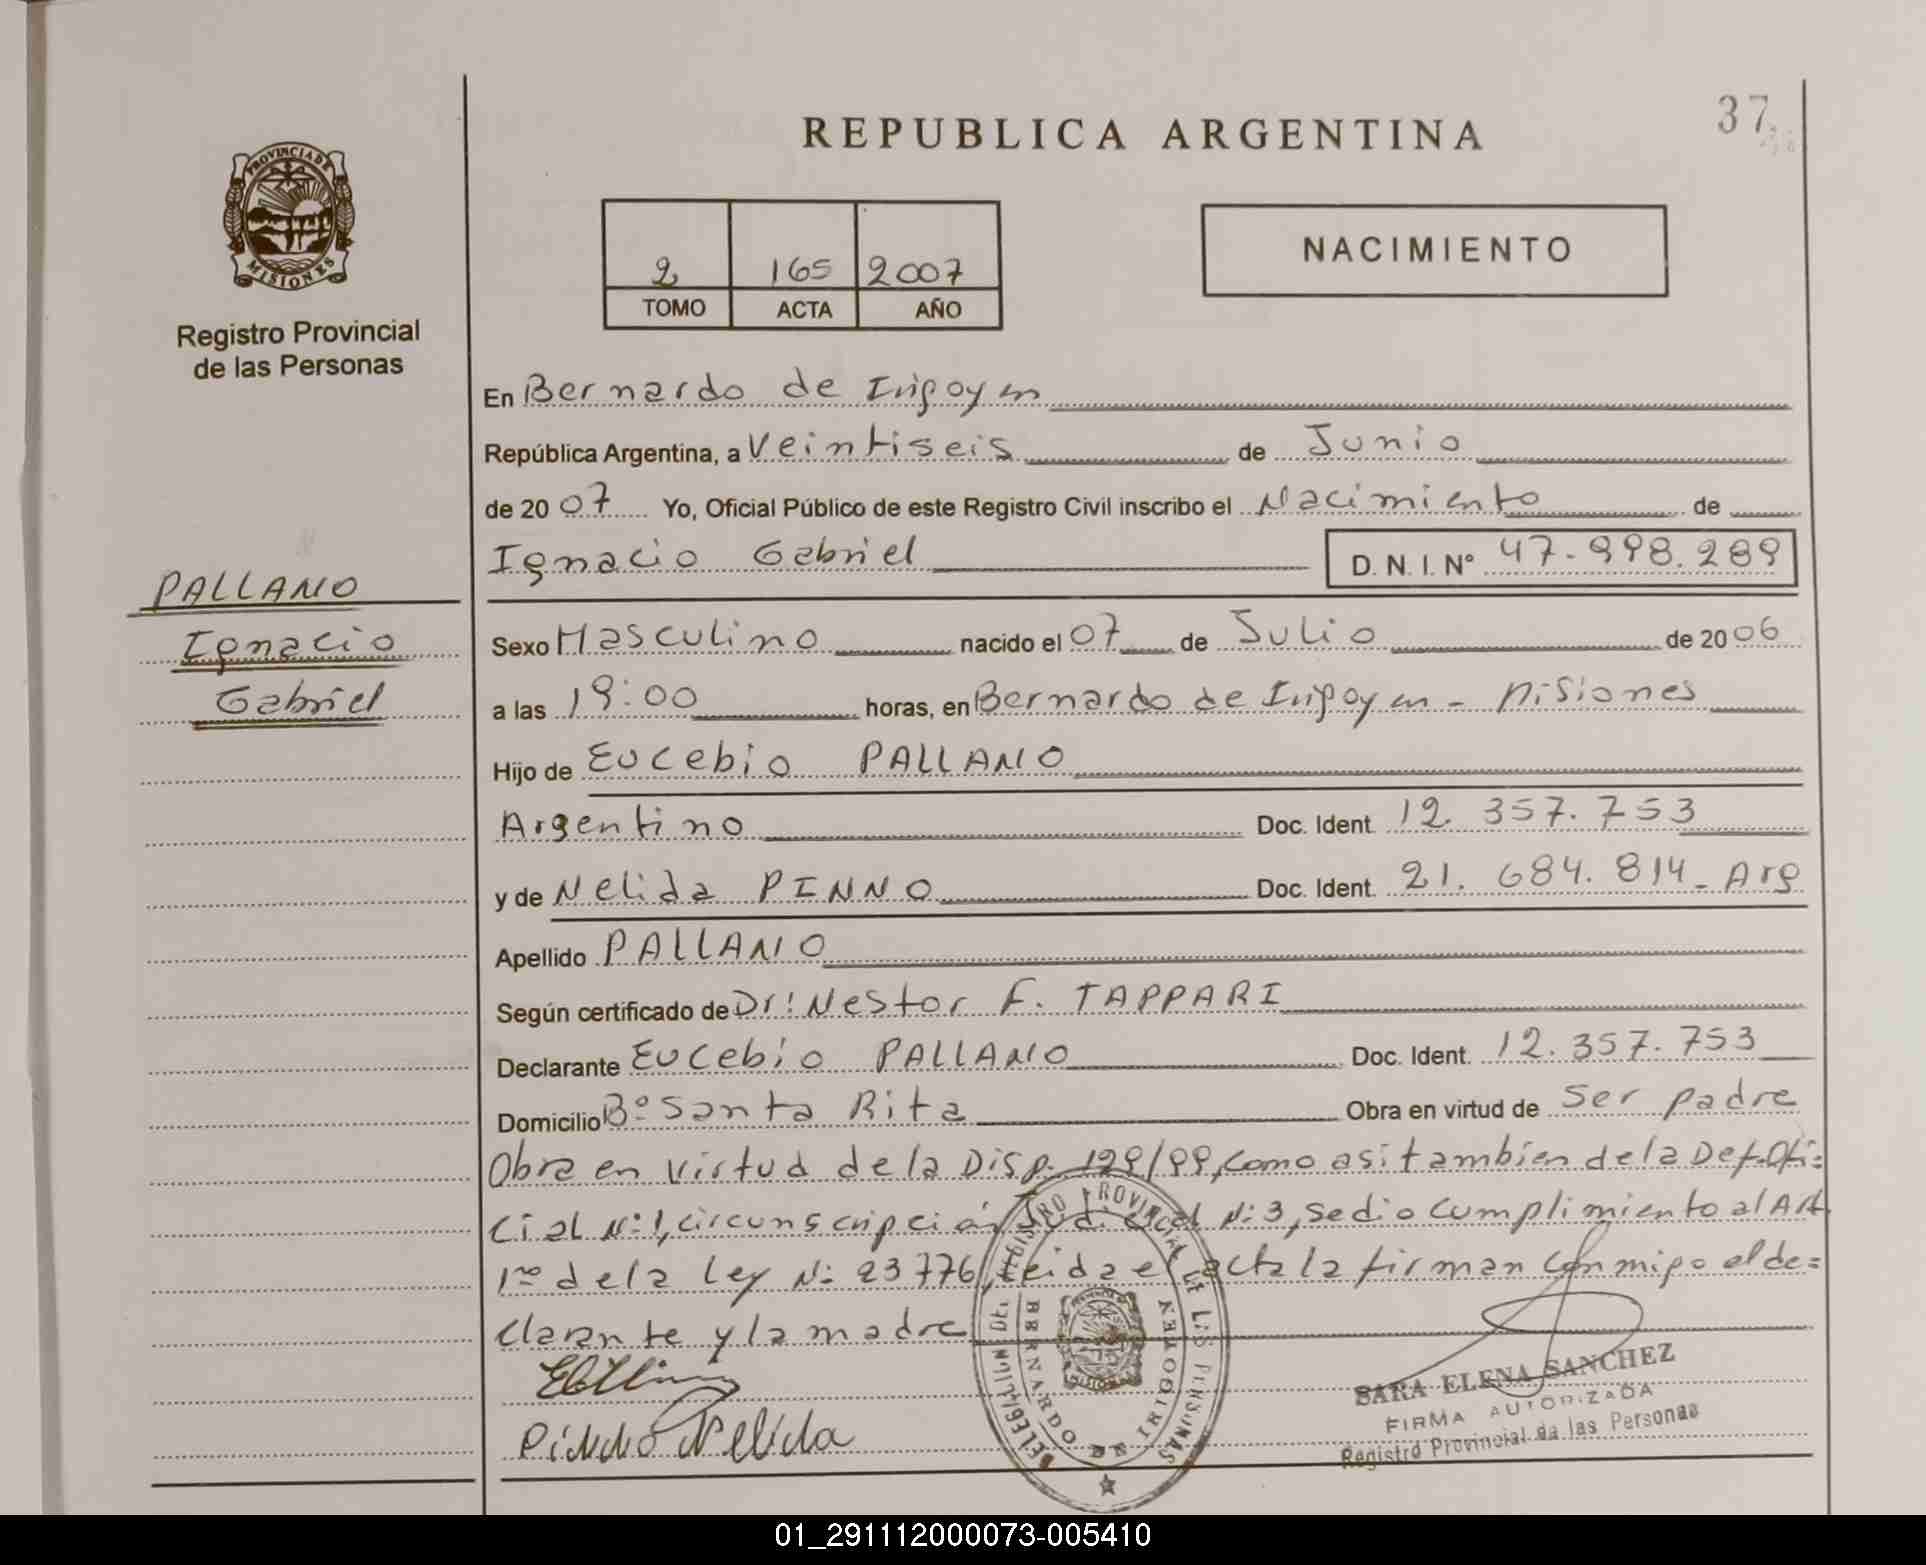 REPUBLICA ARGENTINA
37
PROVINCIA DE
MISIONES
Registro Provincial
de las Personas
2 165 2007
TOMO ACTA AÑO
NACIMIENTO
En Bernardo de Irigoyen
República Argentina, a Veintiseis de Junio
de 2007 Yo, Oficial Público de este Registro Civil inscribo el Nacimiento de
Ignacio Gabriel D.N.I.N° 47-998.289
PALLANO
Ignacio
Gabriel
Sexo Masculino nacido el 07 de Julio de 2006
a las 19:00 horas, en Bernardo de Irigoyen - Misiones
Hijo de Eucebio PALLANO
Argentino Doc. Ident. 12.357.753
y de Nelida PINNO Doc. Ident. 21.684.814- Arg
Apellido PALLANO
Según certificado de Dr: Nestor F. TAPPARI
Declarante Eucebio PALLANO Doc. Ident. 12.357.753
Domicilio B° Santa Rita Obra en virtud de ser padre
Obra en virtud de la Disp. 129/99, como asi tambien de la Def. Ofi=
cial N:1, circunscripción Judicial N:3, se dio cumplimiento al Art
1ro de la Ley N: 23776, leida el acta la firman conmigo el de=
clarante y la madre
Pinno Nelida
DELEGACION DEL REGISTRO PROVINCIAL DE LAS PERSONAS
BERNARDO DE IRIGOYEN
SARA ELENA SANCHEZ
FIRMA AUTORIZADA
Registro Provincial de las Personas
01_291112000073-005410